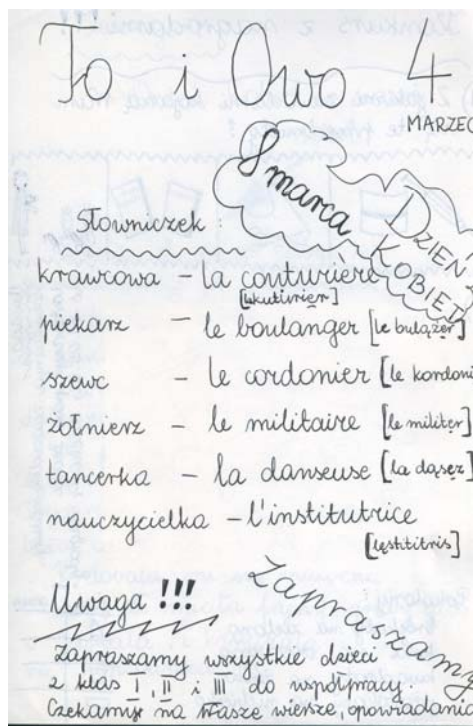 To i Owo 4
MARZEC
8 marca
DZIEŃ
KOBIET
Słowniczek :
krawcowa – la conturière
piekarz – le boulanger [le bulążer]
szewc – le cordonier [le kordoni
żołnierz – le militaire [le militer]
tancerka – la danseuse [la dąsez]
nauczycielka – l'institutrice
Zapraszamy
Uwaga !!!
Zapraszamy wszystkie dzieci
z klas I, II i III do współpracy.
Czekamy na Wasze wiersze, opowiadania